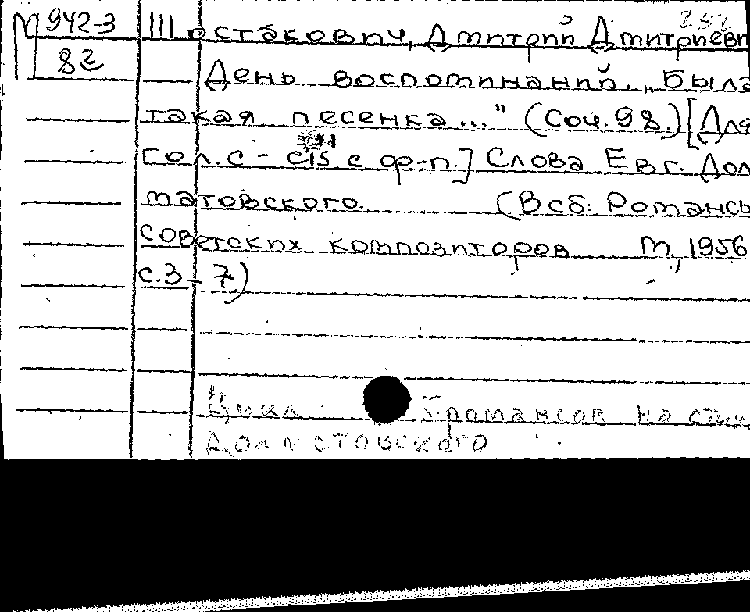 М 942-3
82
Шостакович, Дмитрий Дмитриеви
День воспоминаний. „Была
такая песенка..." (Соч. 98.) [Для
гол. с - cis с ф-п.] Слова Евг. Дол
матовского. (В сб: Романсы
советских композиторов М., 1956
с. 3-7)
Цикл романсов на
Долматовского